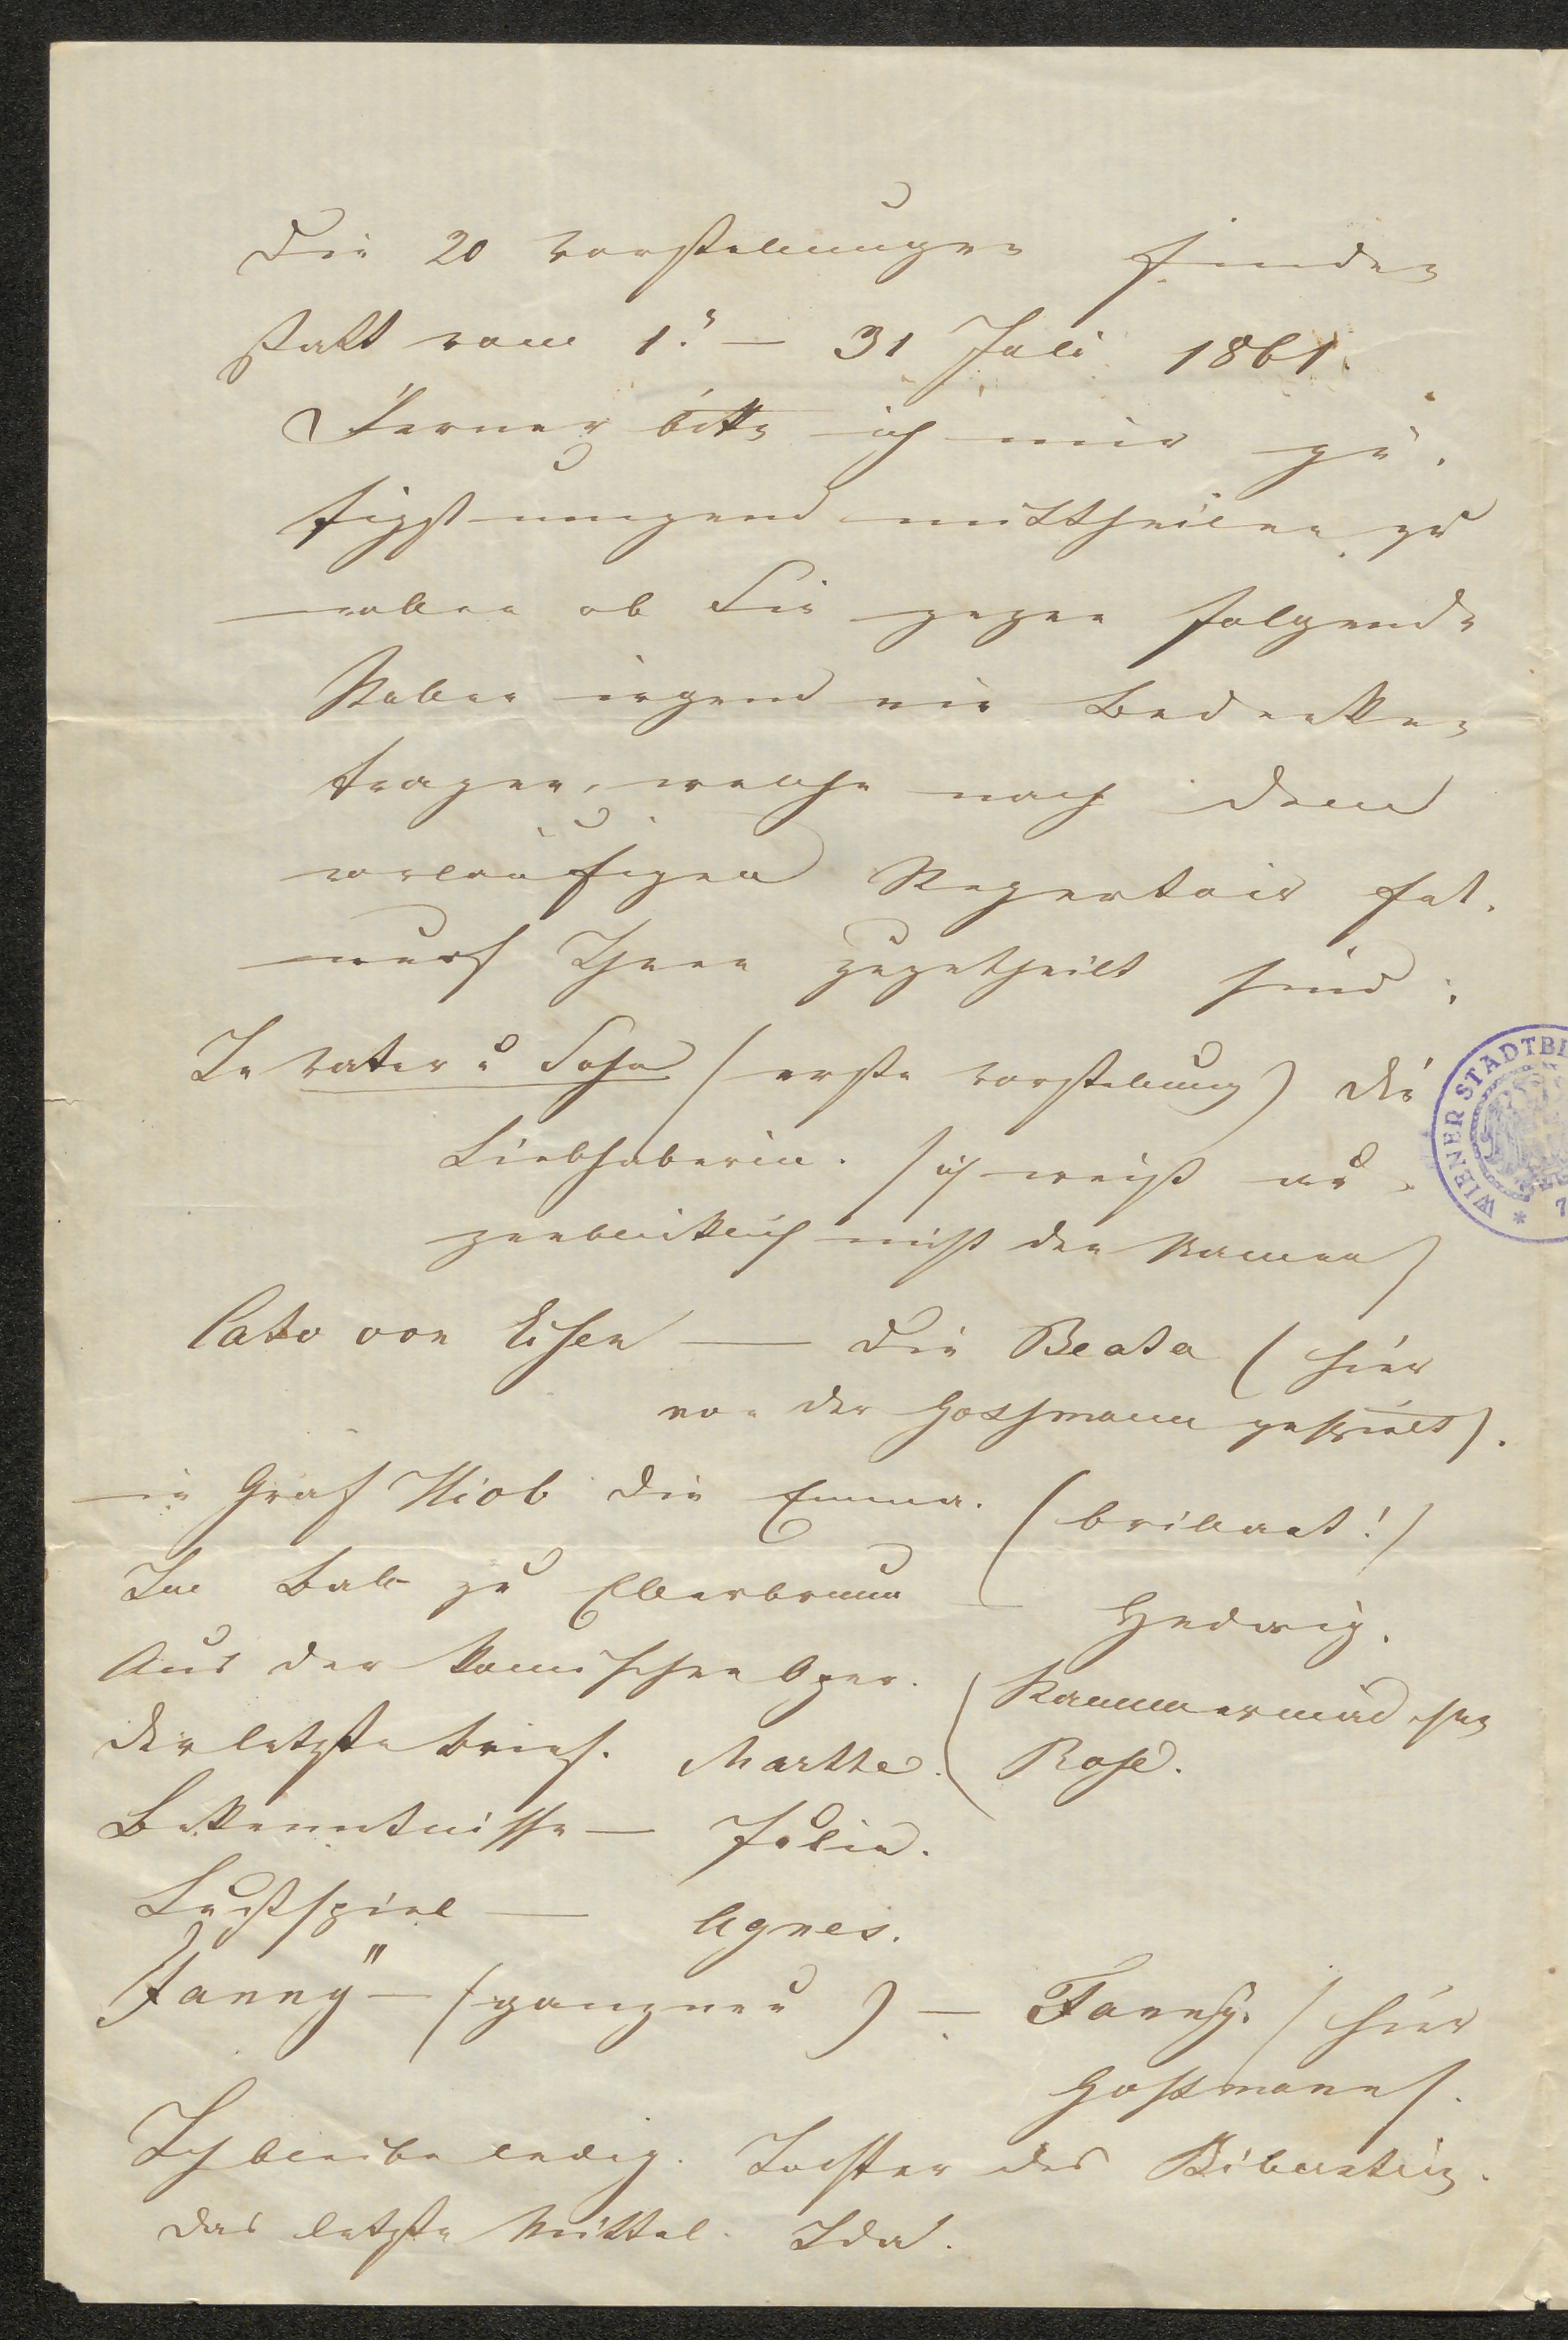 Die 20 Vorstellungen finden
statt vom 1. – 31 Juli 1861.
Ferner bitte ich mir gü-
tigst umgend mittheilen zu
wollen ob Sie gegen folgende
Rollen irgend wie Bedenken
tragen, welche nach dem
vorläufigen Repertoir Ent-
wurf Ihnen zugetheilt sind:
In Vater u Sohn (erste Vorstellung) die
Liebhaberin. (ich weiß au-
genblicklich nicht den Namen)
Cato von Eisen — Die Beata (hier
von der Gossmann gespielt).
in Graf Hiob die Emma. (brillant!)
Im Ball zu Ellerbrunn — Hedwig.
Aus der komischen Oper. (Kammermädchen
Rose.
Der letzte Brief. Marthe.
Bekenntnisse — Julie.
Lustspiel — Agnes.
"Fanny" — (ganz neu) — Fanny. (hier
Gossmann).
Ich bleibe ledig. Tochter des
Das letzte Mittel. Ida.
WIENER STADTBI